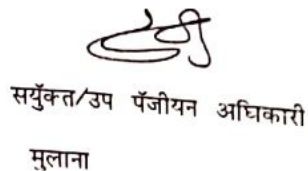 सयुॅक्त/उप पॅजीयन अधिकारी
मुलाना